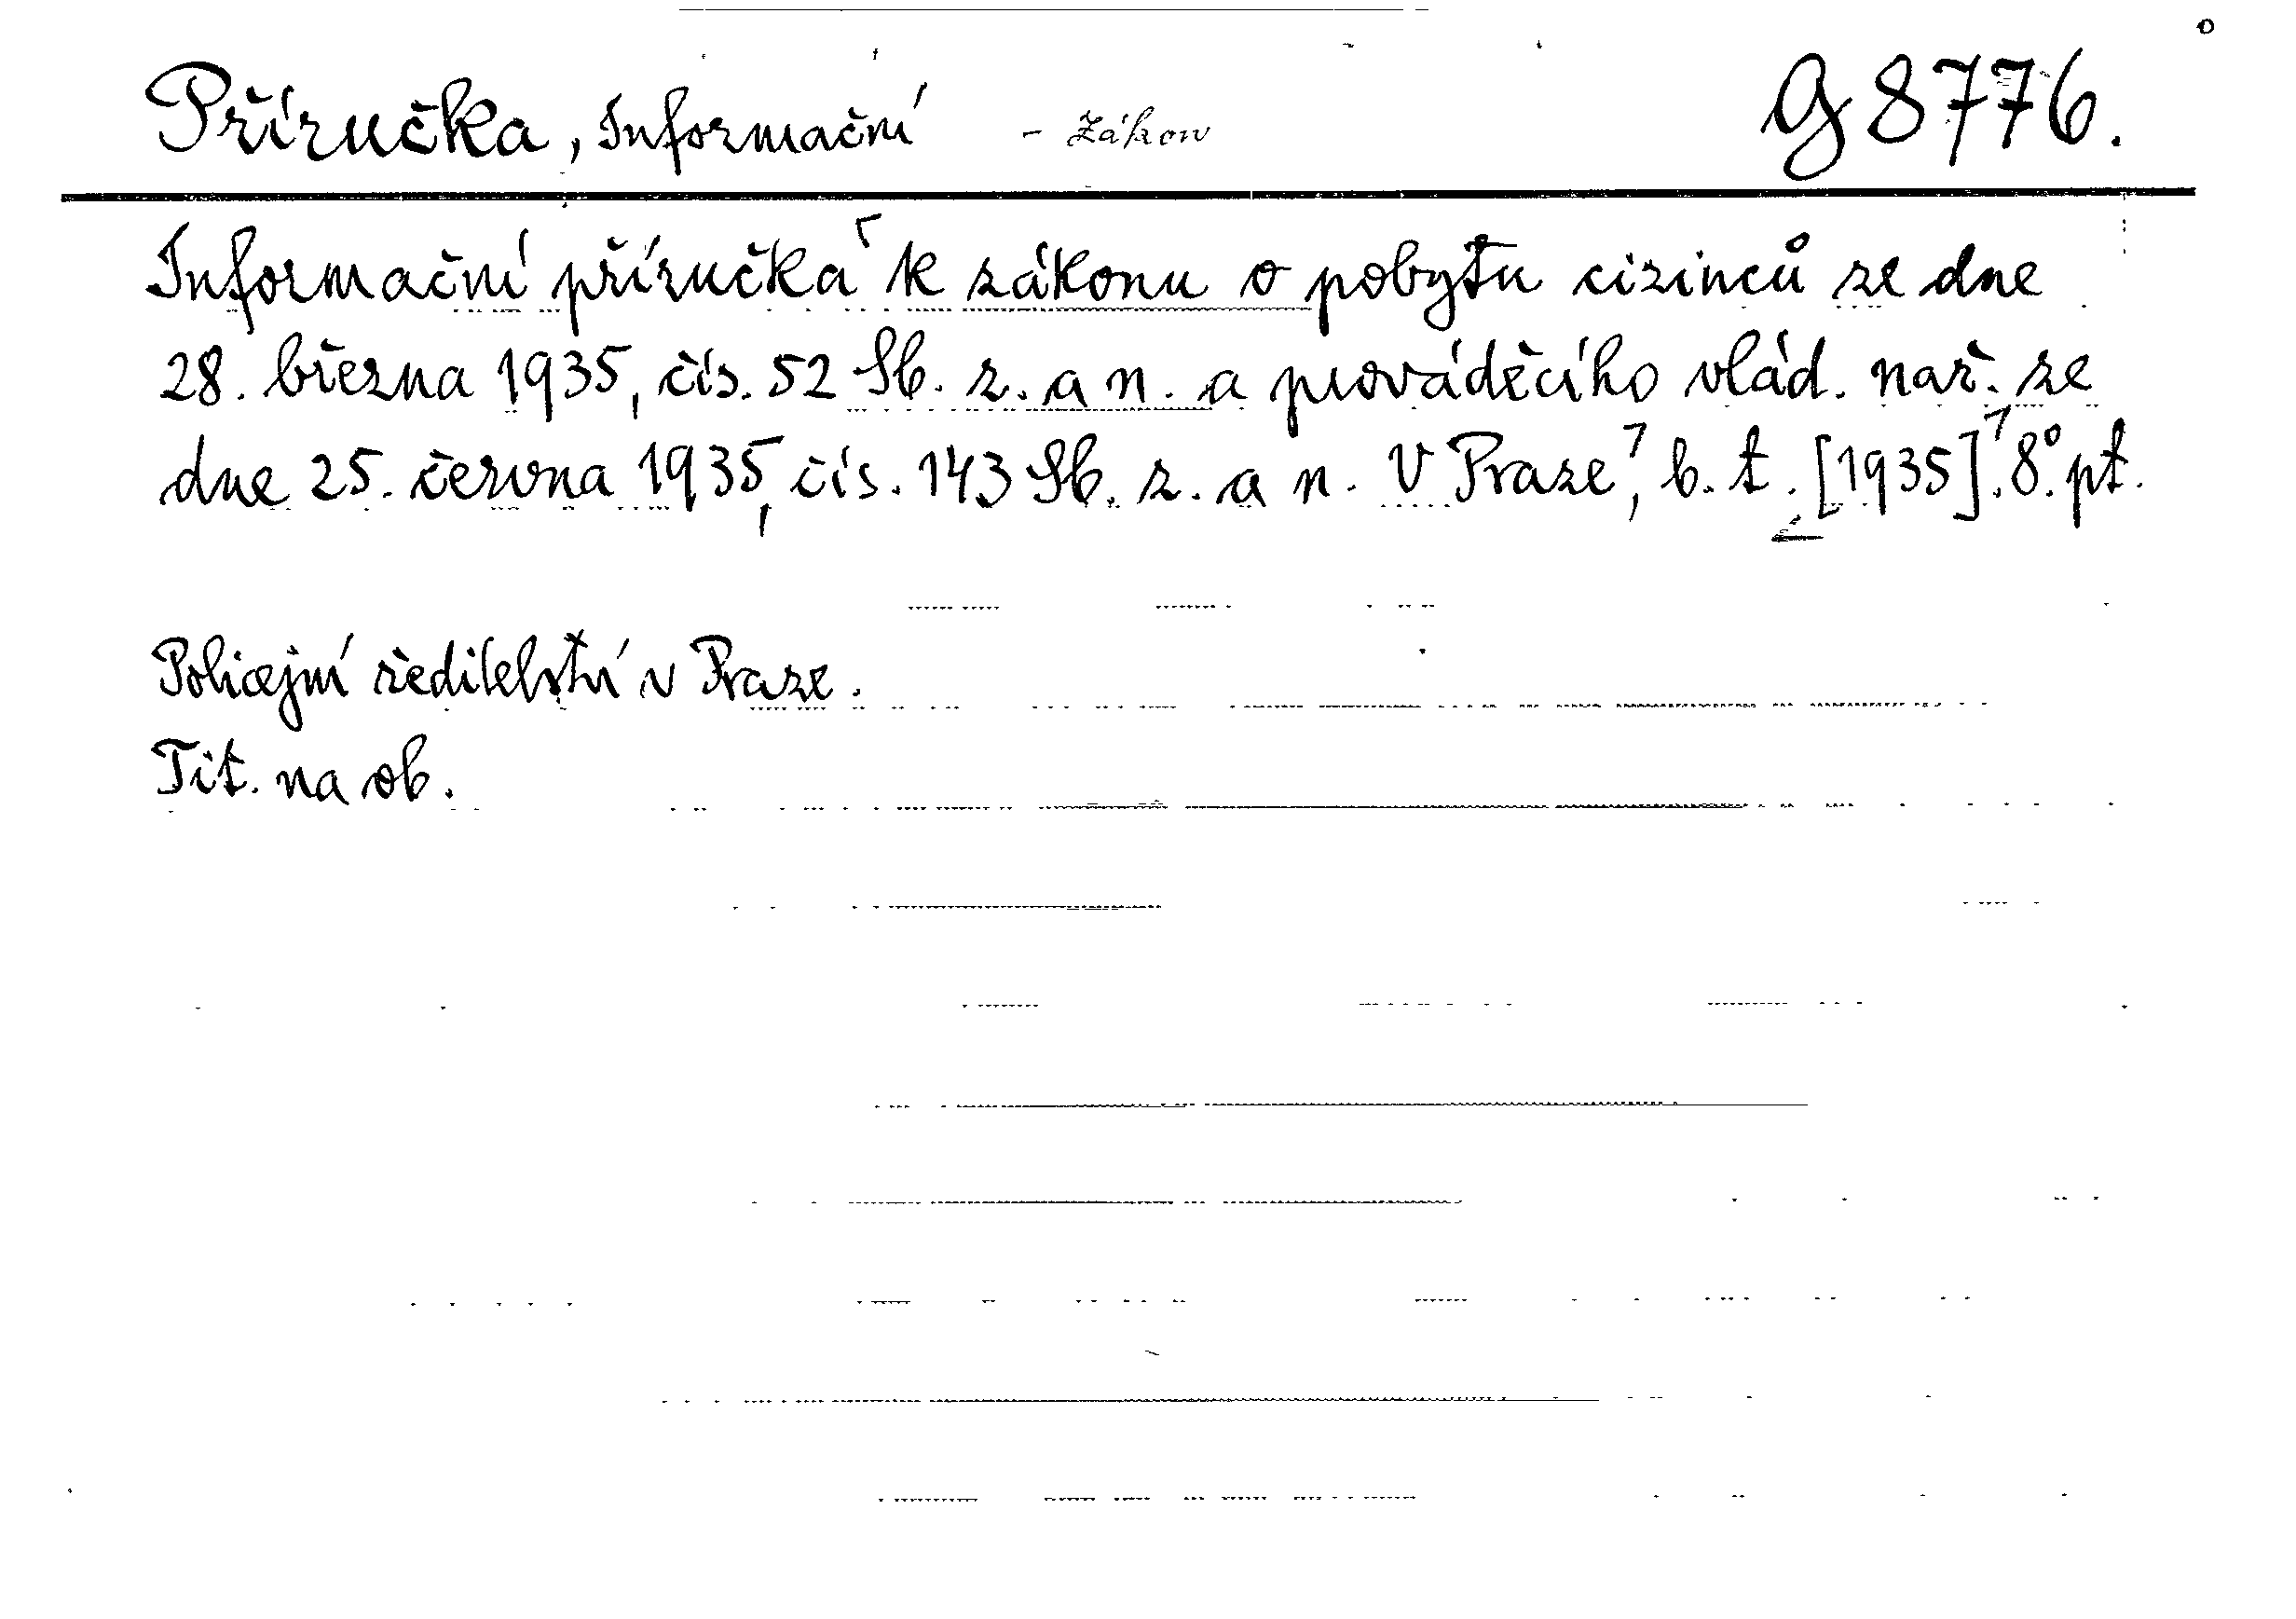 Příručka, Informační - Zákon G 8776.
Informační příručka k zákonu o pobytu cizinců ze dne
28. března 1935, čís. 52 Sb. z. a n. a prováděcího vlád. nař. ze
dne 25. června 1935, čís. 143 Sb. z. a n. V Praze, b. t. [1935]. 8°. pt.
Policejní ředitelství v Praze.
Tit. na ob.